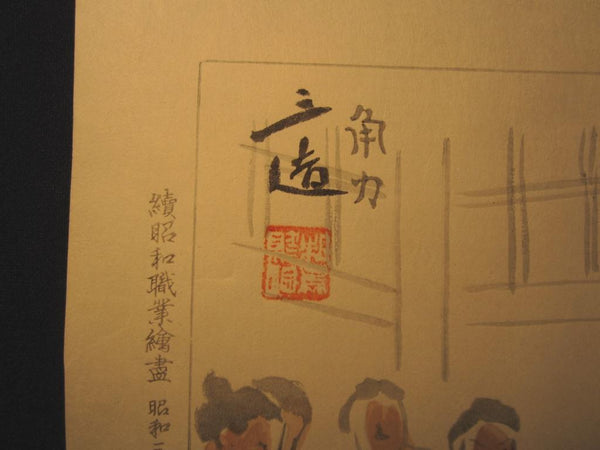 角力
三造
續昭和職業繪盡 昭和